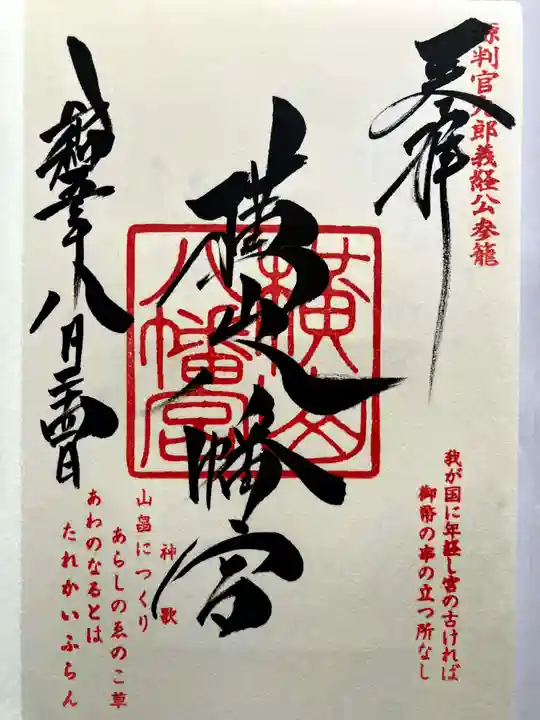 源判官九郎義経公参籠
天拝
我が国に年経し宮の古ければ
御幣の串の立つ所なし
横山八幡宮
横山
八幡宮
神歌
山畠につくり
あらしのゑのこ草
あわのなるとは
たれかいふらん
令和五年八月二十四日